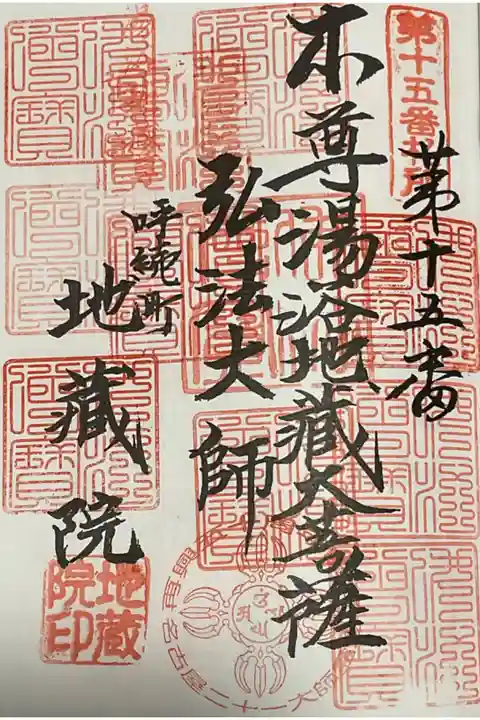 第十五番札所
第十五番
本尊湯浴地藏大菩薩
弘法大師
呼続町
地藏院
佛法僧寶
地蔵院印
名古屋二十一大師